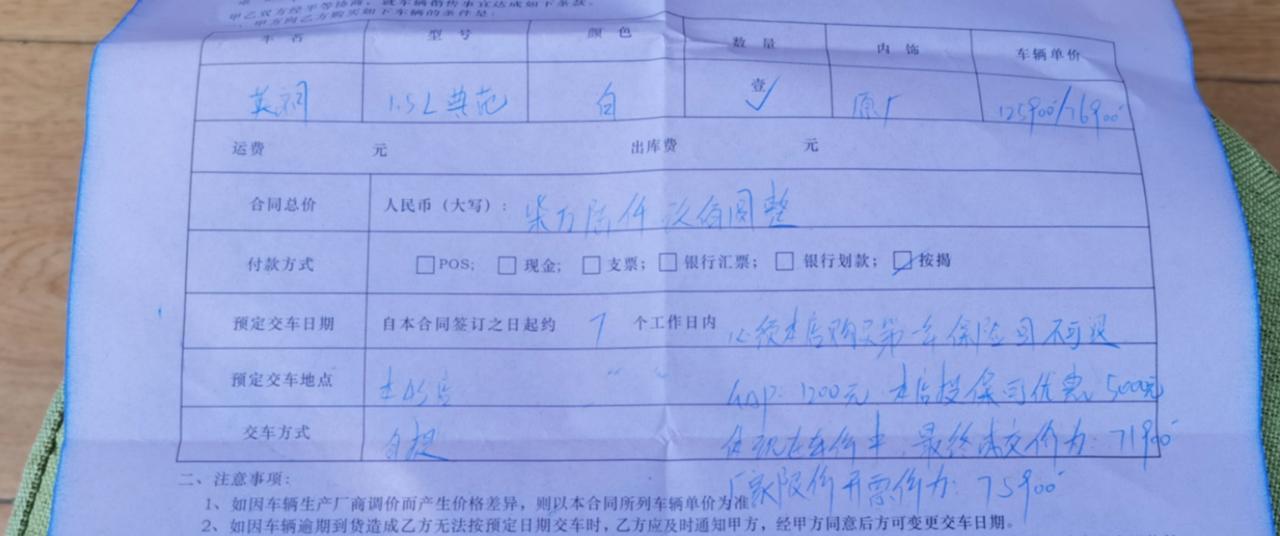 甲乙双方经平等协商，就车辆销售事宜达成如下条款。
一、甲方向乙方购买如下车辆的条件是：
车名 型号 颜色 数量 内饰 车辆单价
英朗 1.5L典范 白 壹 原厂 125900/76900
运费 元 出库费 元
合同总价 人民币（大写）： 柒万陆仟玖佰圆整
付款方式 POS; 现金; 支票; 银行汇票; 银行划款; 按揭
预定交车日期 自本合同签订之日起约 7 个工作日内 必须本店购买第一年保险 不可退
预定交车地点 本4S店 1200元 本店投保可优惠 5000元
交车方式 自提 体现在车价中，最终成交价为：71900
厂家限价开票价为：75900
二、注意事项:
1、如因车辆生产厂商调价而产生价格差异，则以本合同所列车辆单价为准。
2、如因车辆逾期到货造成乙方无法按预定日期交车时，乙方应及时通知甲方，经甲方同意后方可变更交车日期。